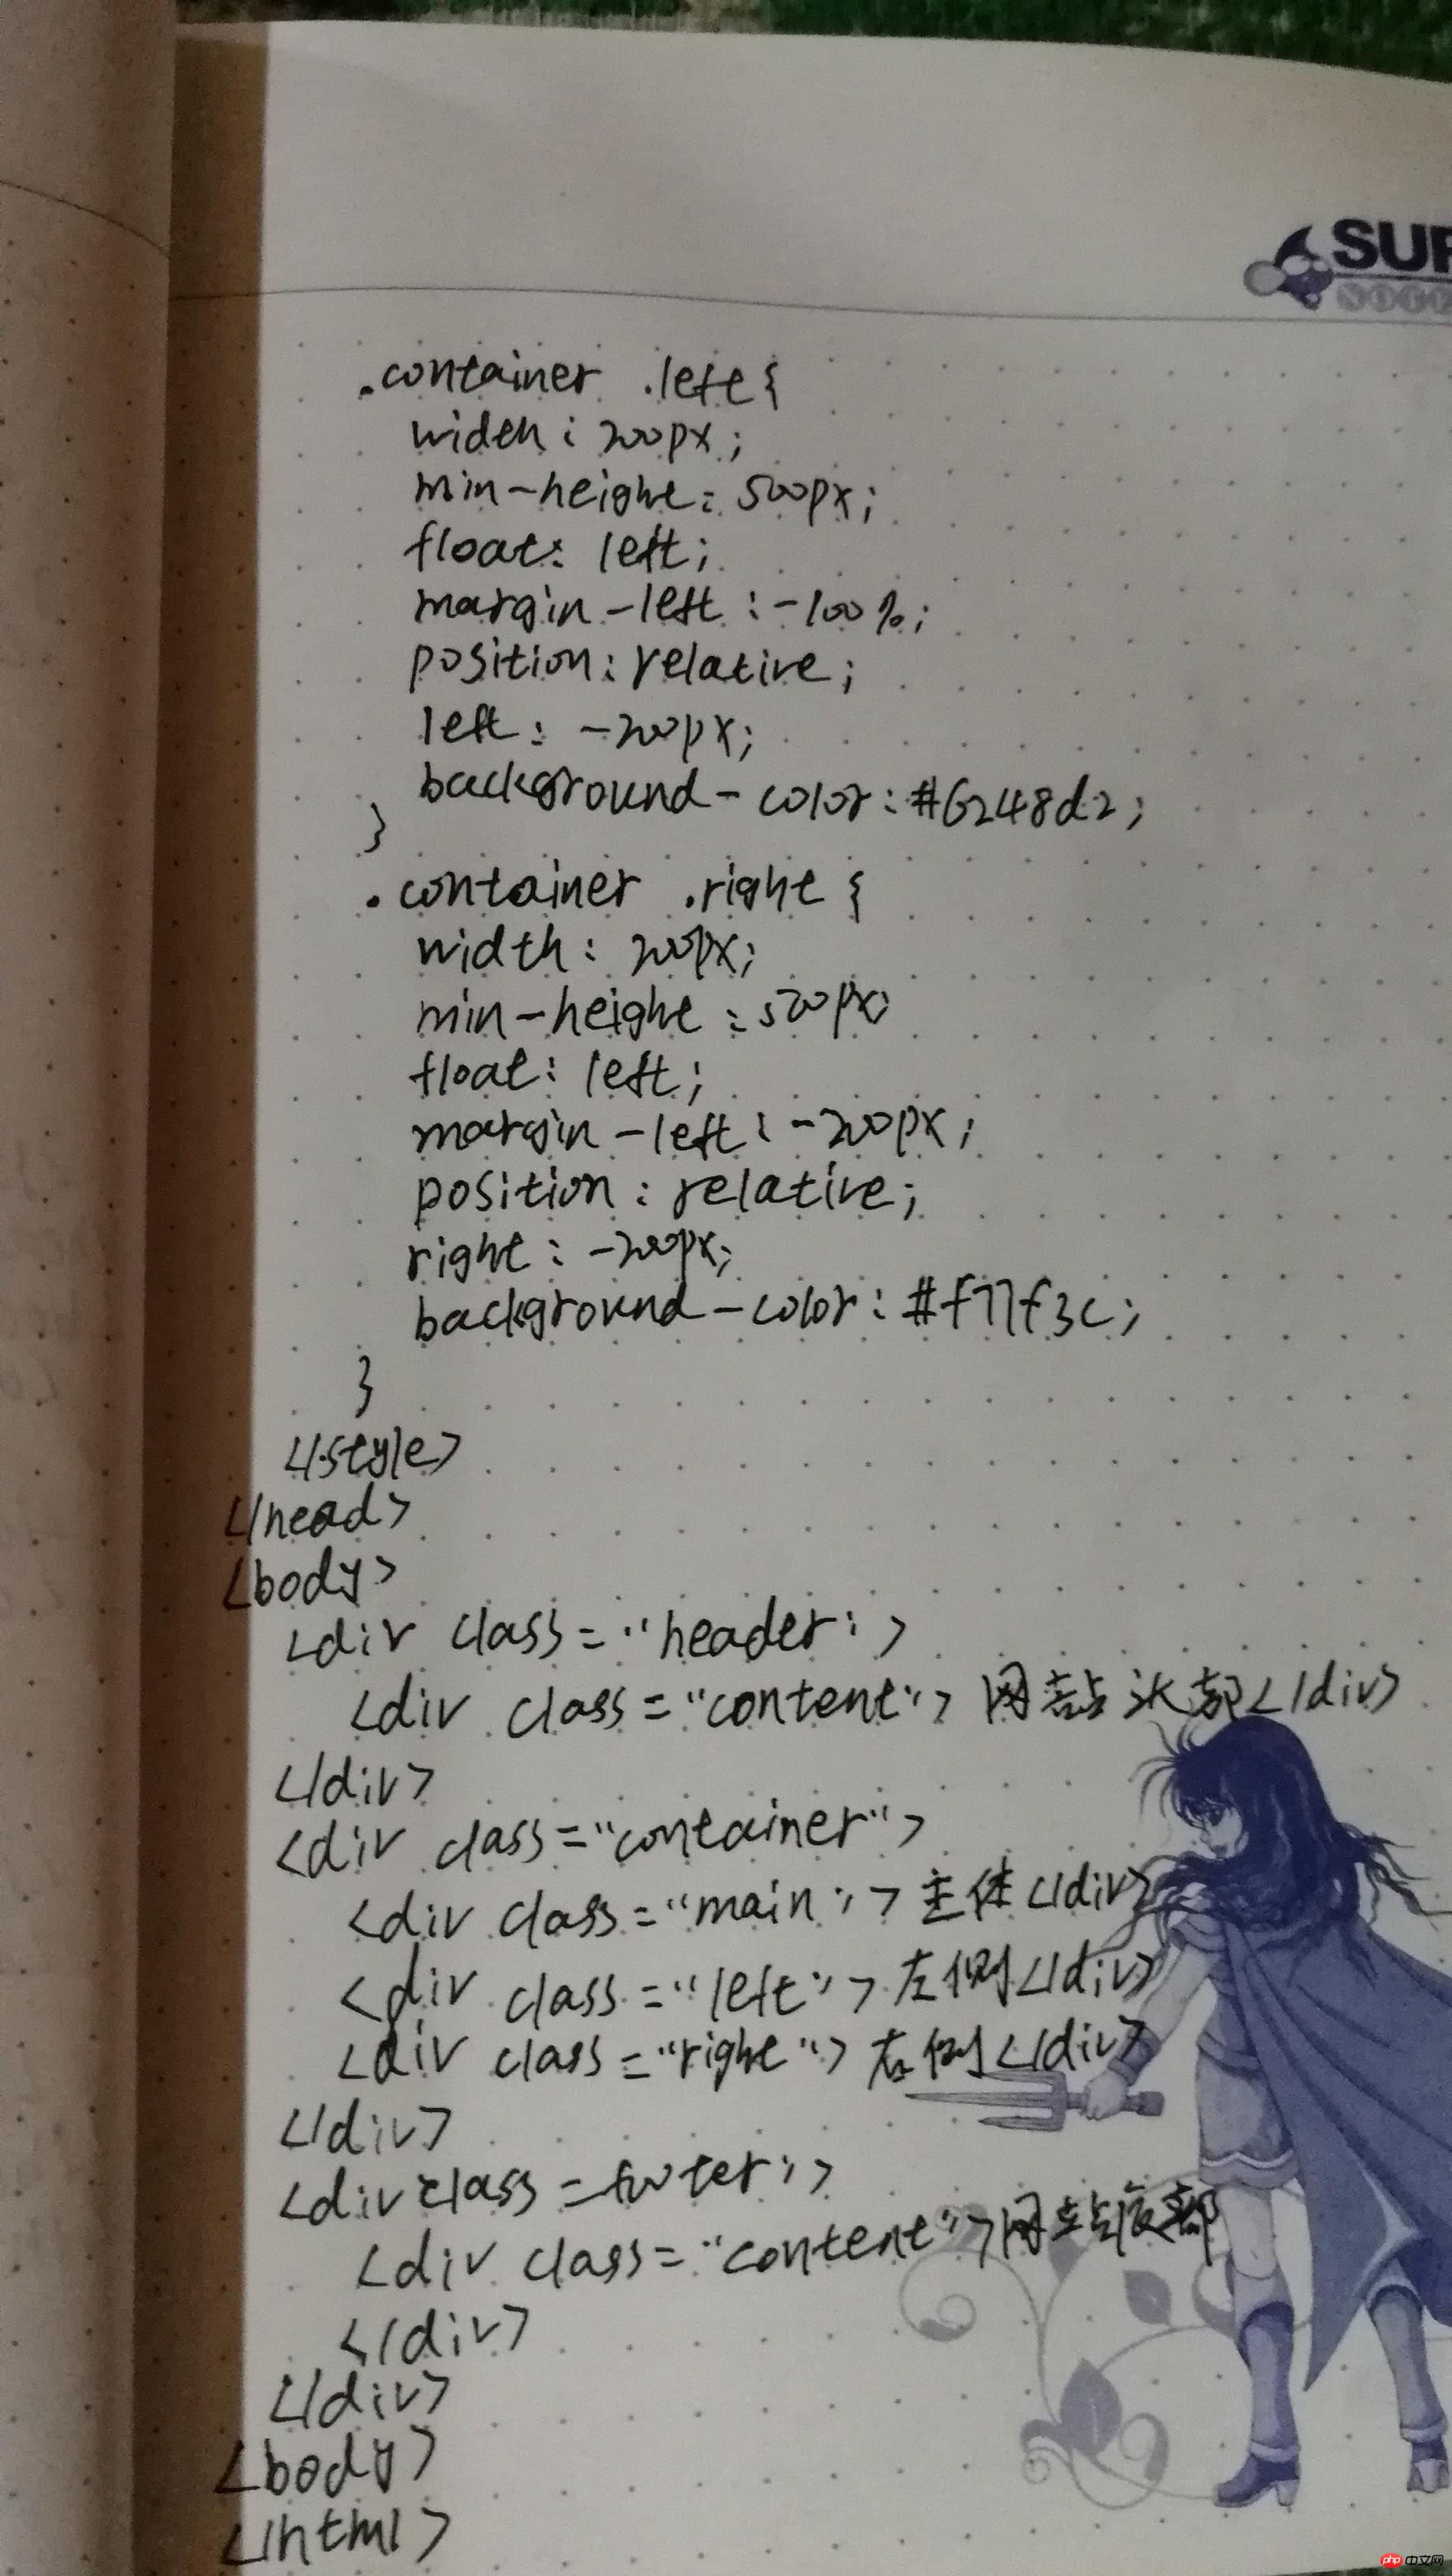 SUP
.container .left{
width: 200px;
min-height: 500px;
float: left;
margin-left: -100%;
position: relative;
left: -200px;
background-color: #6248d2;
}
.container .right {
width: 200px;
min-height: 500px;
float: left;
margin-left: -200px;
position: relative;
right: -200px;
background-color: #f77f3c;
}
</style>
</head>
<body>
<div class="header">
<div class="content">网站头部</div>
</div>
<div class="container">
<div class="main">主体</div>
<div class="left">左侧</div>
<div class="right">右侧</div>
</div>
<div class=footer">
<div class="content">网站底部
</div>
</div>
<body>
</html>
php 中文网